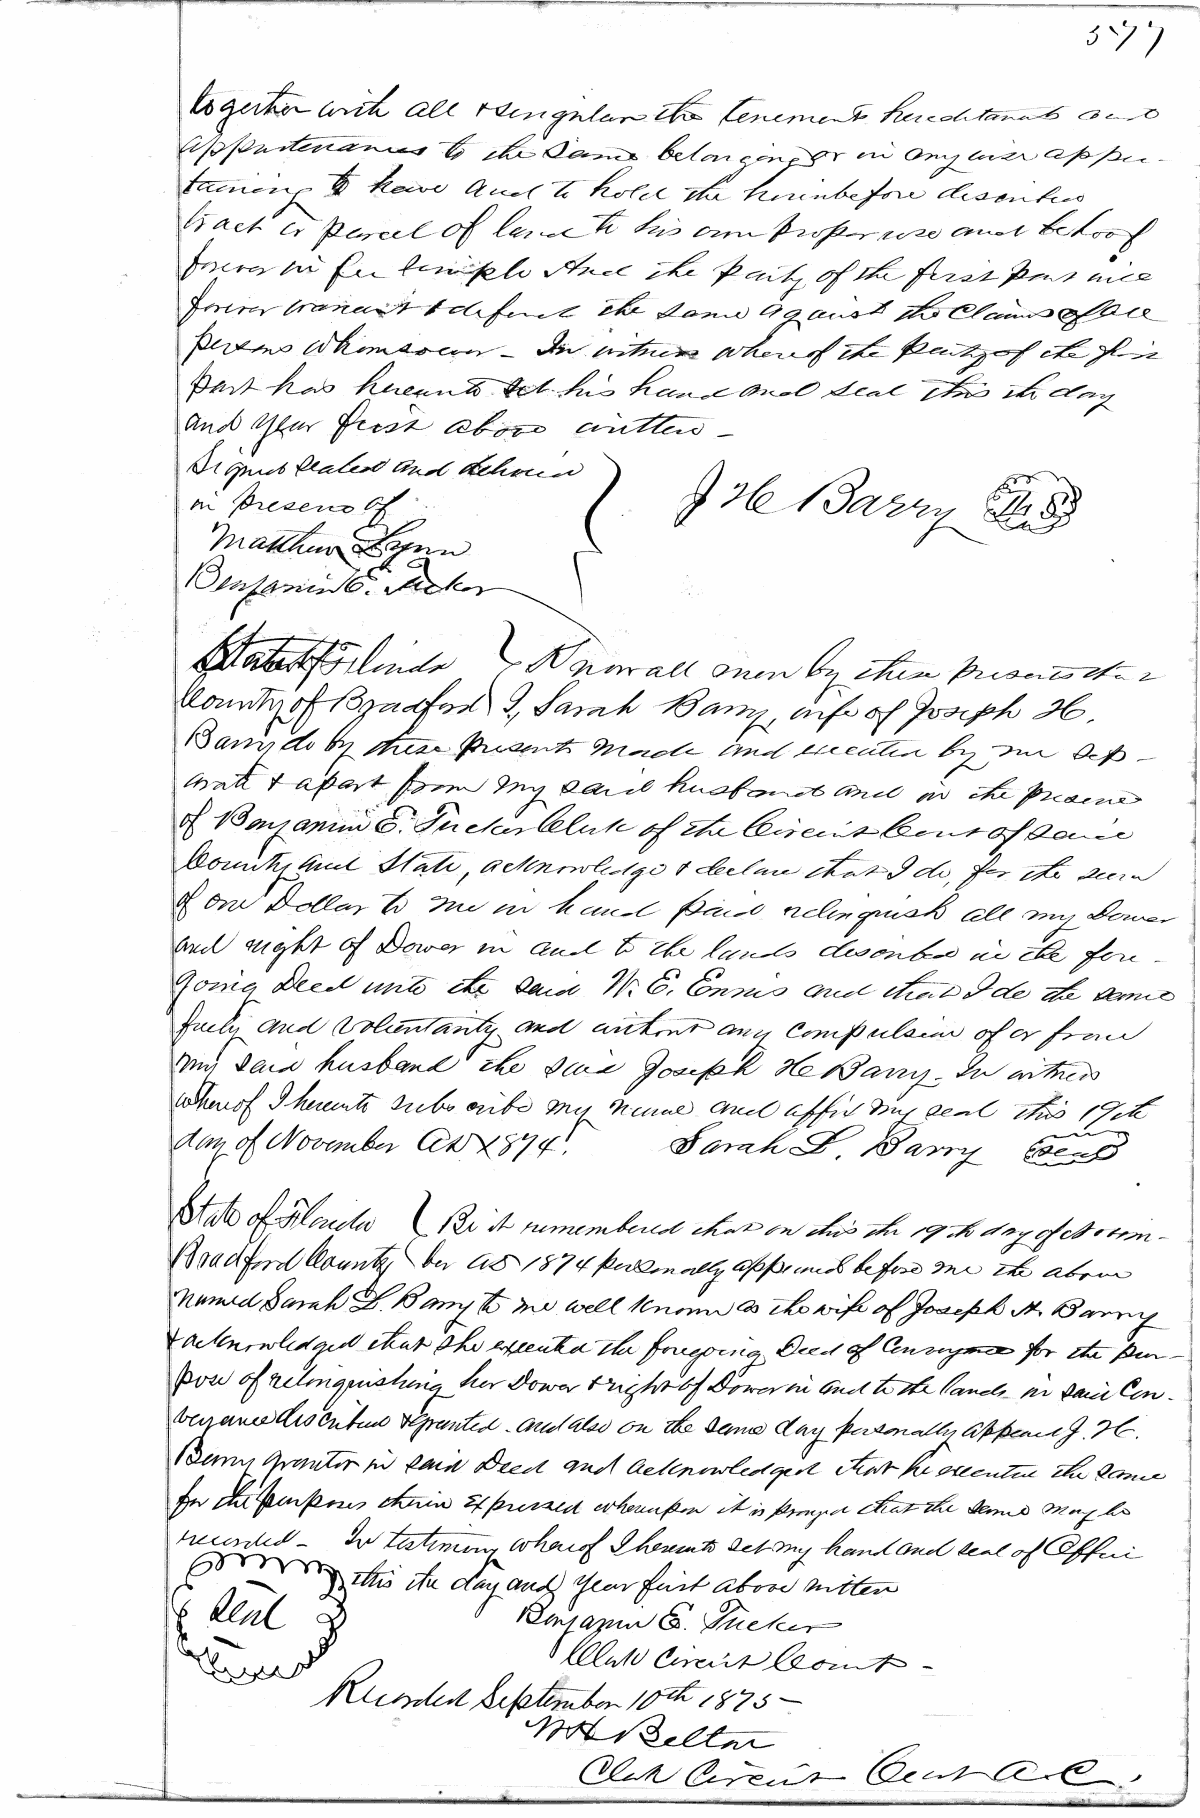 577
together with all & singular the tenements hereditaments and
appurtenances to the same belonging or in any wise apper-
taining to have and to hold the hereinbefore described
tract or parcel of land to his own proper use and behoof
forever in fee simple And the party of the first part will
forever warrant & defend the same against the claims of all
persons whomsoever - In witness whereof the party of the first
part has hereunto set his hand and seal this the day
and year first above written -
Signed sealed and delivered
in presence of
J H Barry L S
Matthew Lynn
Benjamin E. Tucker
State of Florida } Know all men by these presents that
County of Bradford } I, Sarah Barry, wife of Joseph H.
Barry do by these presents made and executed by me sep-
arate & apart from my said husband and in the presence
of Benjamin E. Tucker Clerk of the Circuit Court of said
County and State, acknowledge & declare that I do, for the sum
of one Dollar to me in hand paid relinquish all my Dower
and right of Dower in and to the lands described in the fore-
going Deed unto the said W. E. Ennis and that I do the same
freely and voluntarily and without any compulsion of or from
my said husband the said Joseph H Barry. In witness
whereof I hereunto subscribe my name and affix my seal this 19th
day of November AD 1874. Sarah L. Barry Seal
State of Florida } Be it remembered that on this the 19th day of Novem-
Bradford County } ber AD 1874 personally appeared before me the above
named Sarah L. Barry to me well known as the wife of Joseph H. Barry
& acknowledged that she executed the foregoing Deed of Conveyance for the pur-
pose of relinquishing her Dower & right of Dower in and to the lands in said Con-
veyance described & granted. and also on the same day personally appeared J. H.
Barry grantor in said Deed and acknowledged that he executed the same
for the purposes therein expressed whereupon it is prayed that the same may be
recorded - In testimony whereof I hereunto set my hand and seal of Office
this the day and year first above written
Seal
Benjamin E. Tucker
Clerk Circuit Court -
Recorded September 10th 1875 -
Belton
Clerk Circuit Court